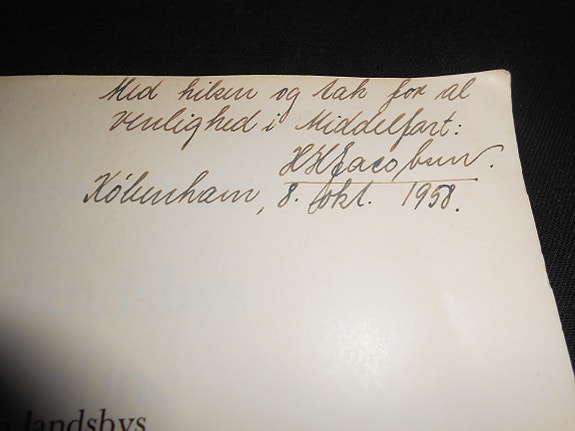 Med hilsen og tak for al
venlighed i Middelfart:
HHJacobsen.
København, 8. okt. 1958.
landsbys